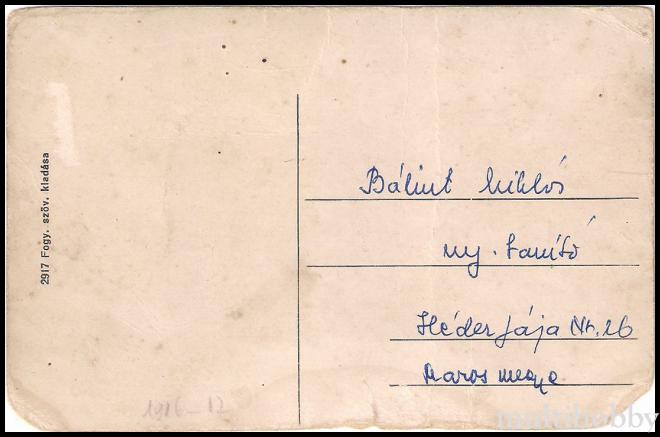 2917 Fogy. szöv. kiadása
Bálint Miklós
ny. tanító
Héderfája Nr. 26
Maros megye
1916-12